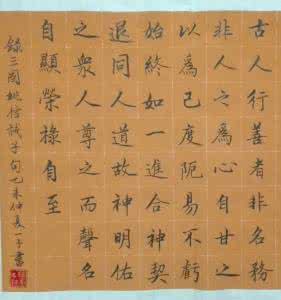 古人行善者非名務
非人之為心自甘之
以為己度阨易不虧
始終如一進合神契
退同人道故神明佑
之眾人尊之而聲名
自顯榮祿自至
錄三國姚信誡子句乙未仲夏一子書